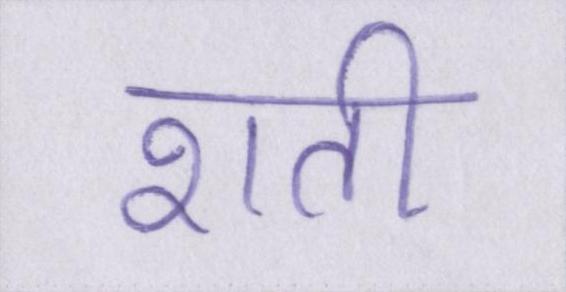 शती